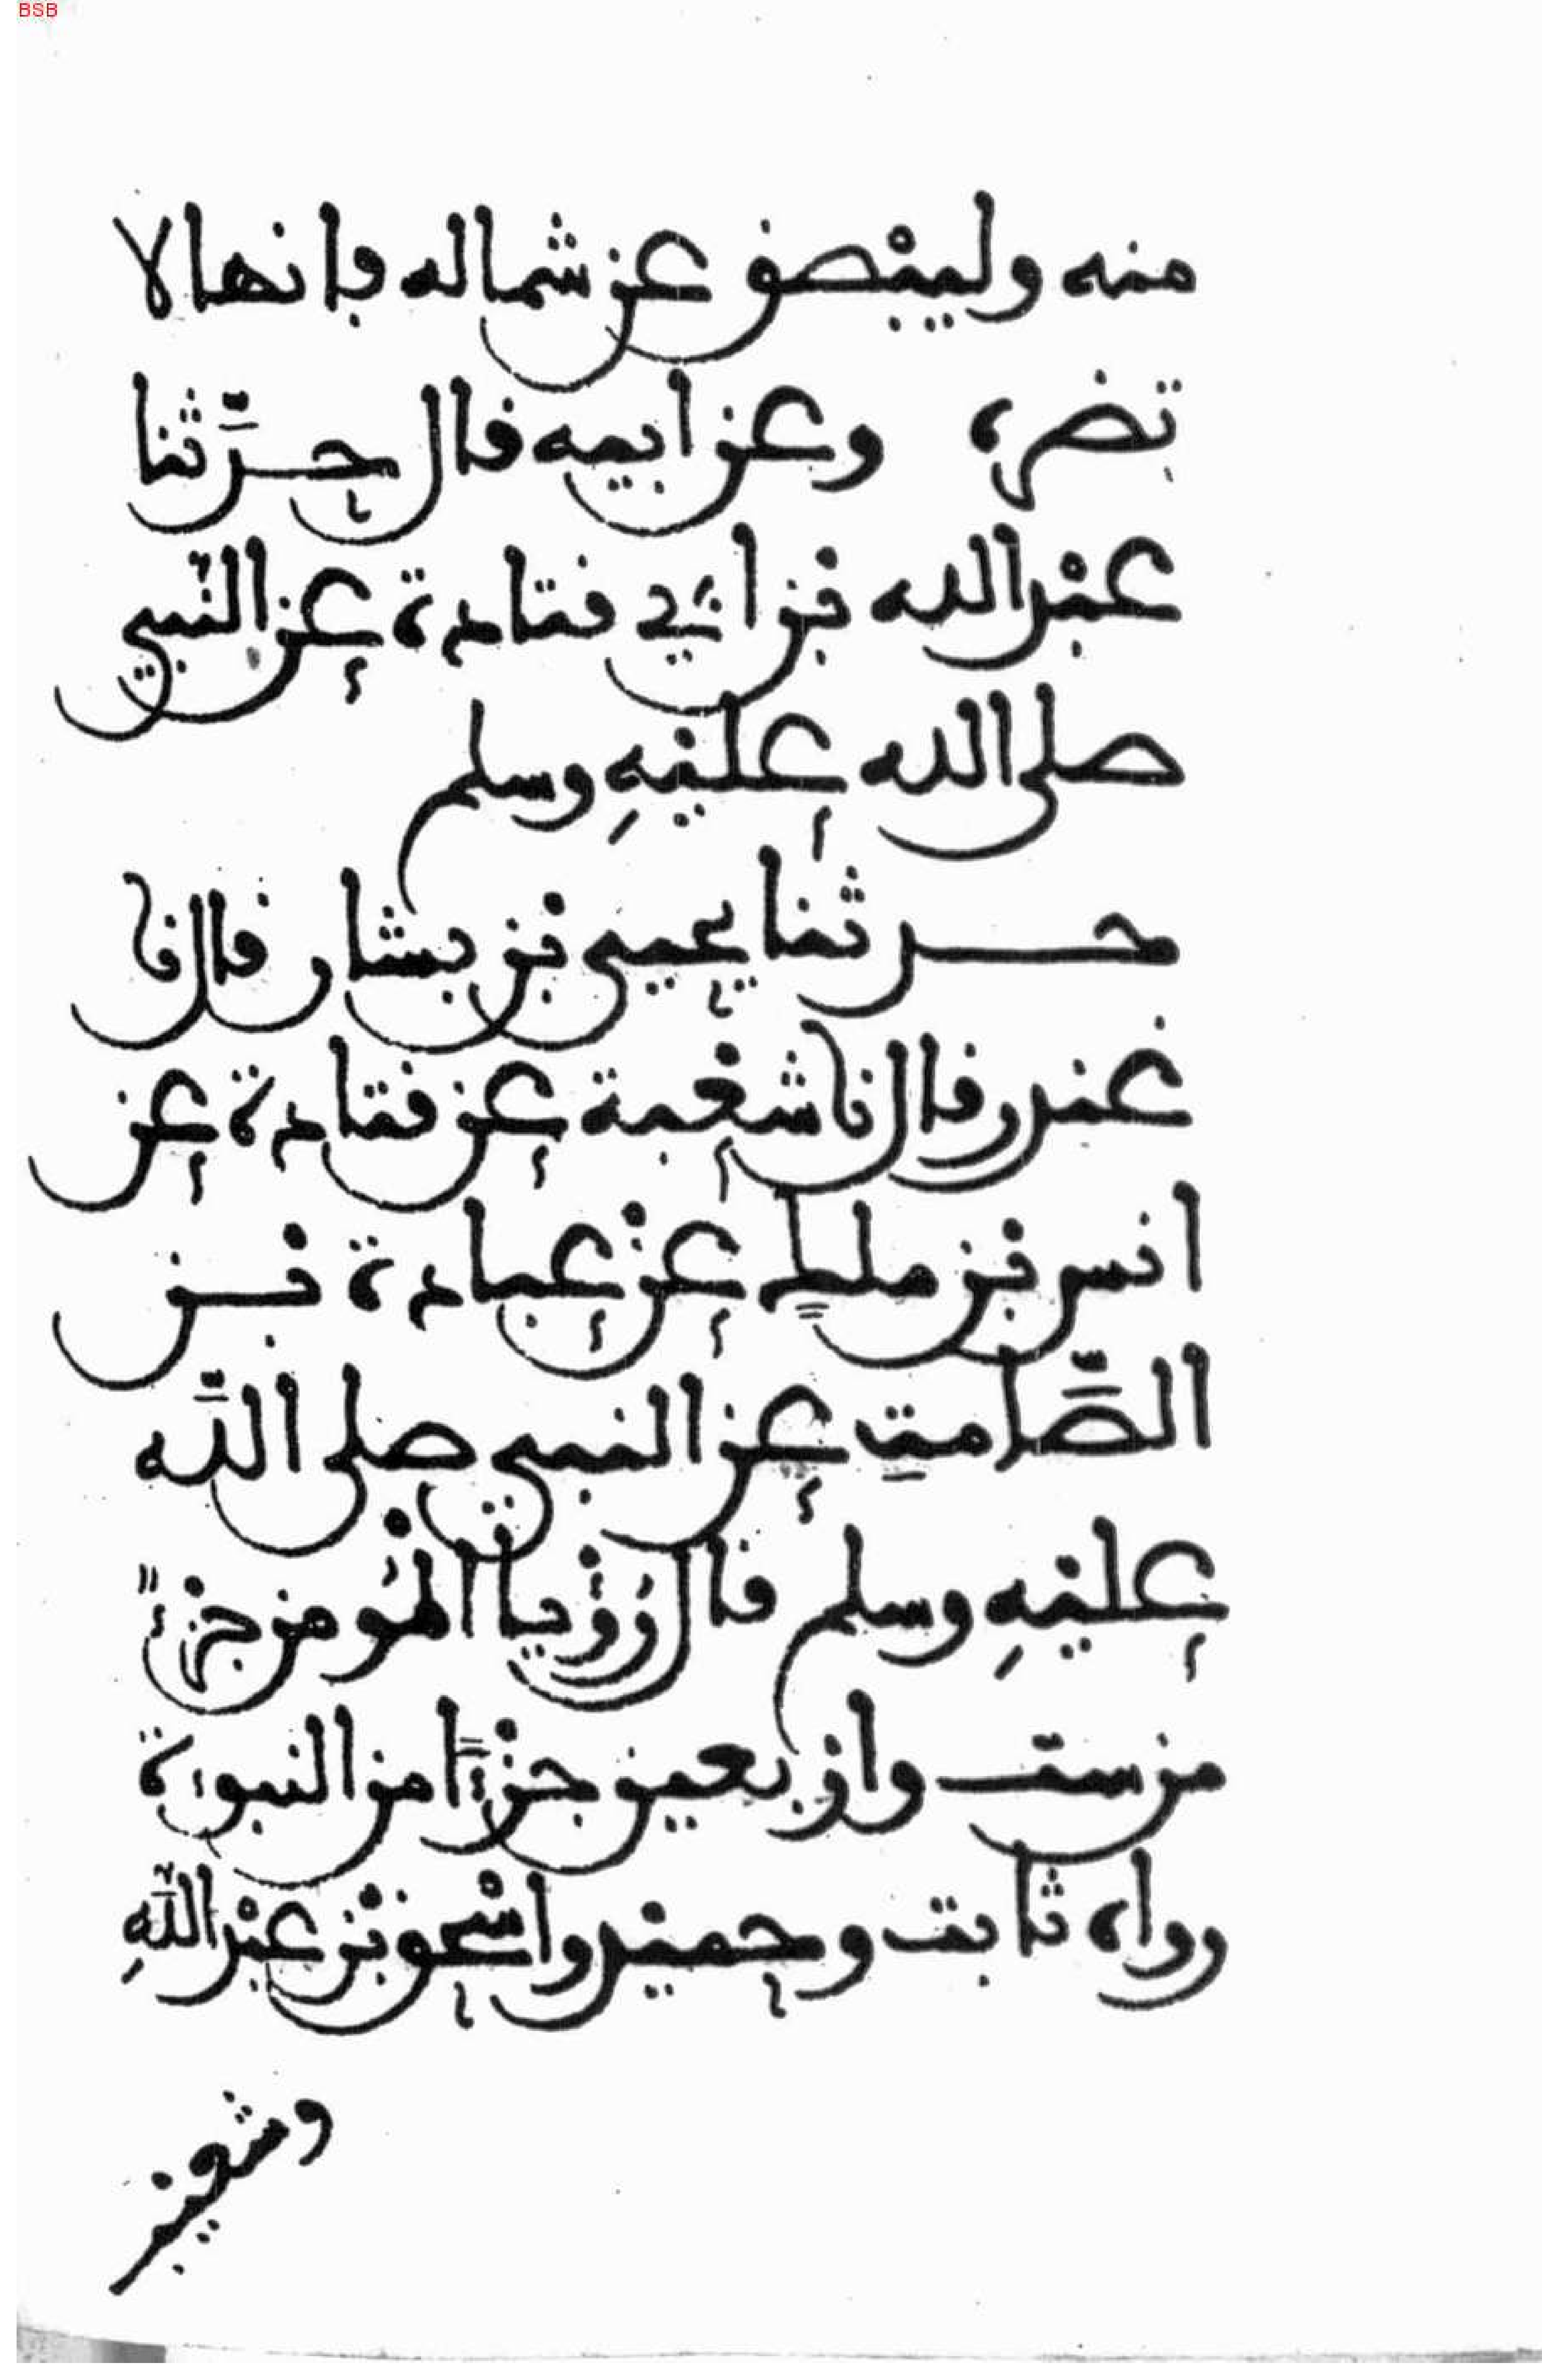 BSB
منه وليبْصق عن شماله فإنها لا
تضره وعن ابيه قال حدَّثنا
عبْد الله بن ابي قتادة عن النّبي
صلى الله عليْهِ وسلم
حدثنا يحيى بن بشار قال نا
غندر قال نا شعْبة عن قتادة عن
انس بن ملك عنْ عبادة بن
الصَّامتِ عن النبي صلى اللَّه
عليْهِ وسلم قال رُؤْيا المُومن جزْءٌ
من ست وارْبعين جزْءًا من النبوءة
رواه ثابت وحميْد واسْحٰق بْن عبْد اللّهِ
وشعيب